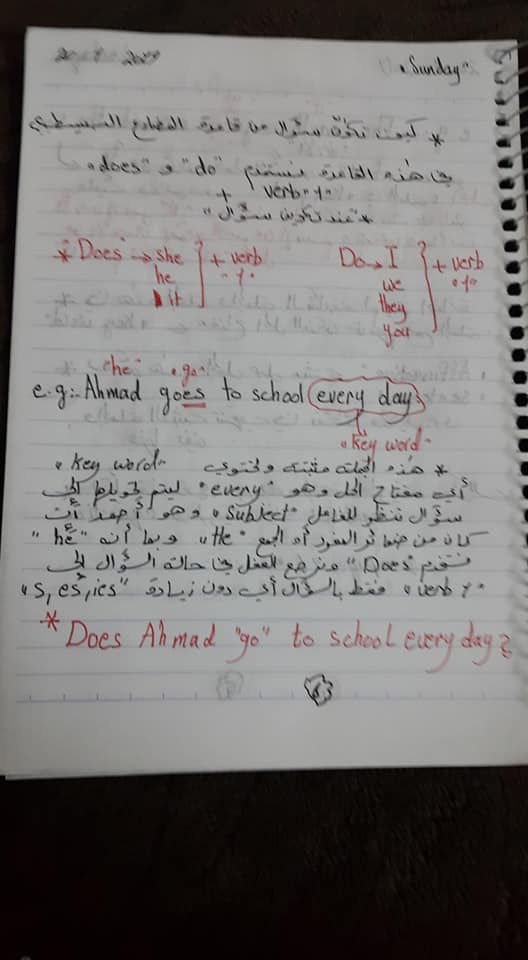 "Sunday"
* كيف نكوّن سؤال من قاعدة المضارع البسيط؟
في هذه القاعدة نستخدم "do" و "does"
+ verb "1"
*عند تكوين سؤال"
* Does → she he it } + verb "1"
Do → I we they you } + verb "1"
"he" "go"
e.g:- Ahmad goes to school (every day).
"key word"
* هذه الجملة مثبتة وتحتوي "key word"
أي مفتاح الحل وهو "every" ليتم تحويلها إلى
سؤال ننظر للفاعل "subject" وهو أحمد أن
كان من ضمائر المفرد أو الجمع "He" وبما أنه "he"
نستخدم "Does" ونرجع الفعل في حالة السؤال إلى
"verb 1" فقط بالسؤال أي دون زيادة "s, es, ies"
* Does Ahmad "go" to school every day?
63